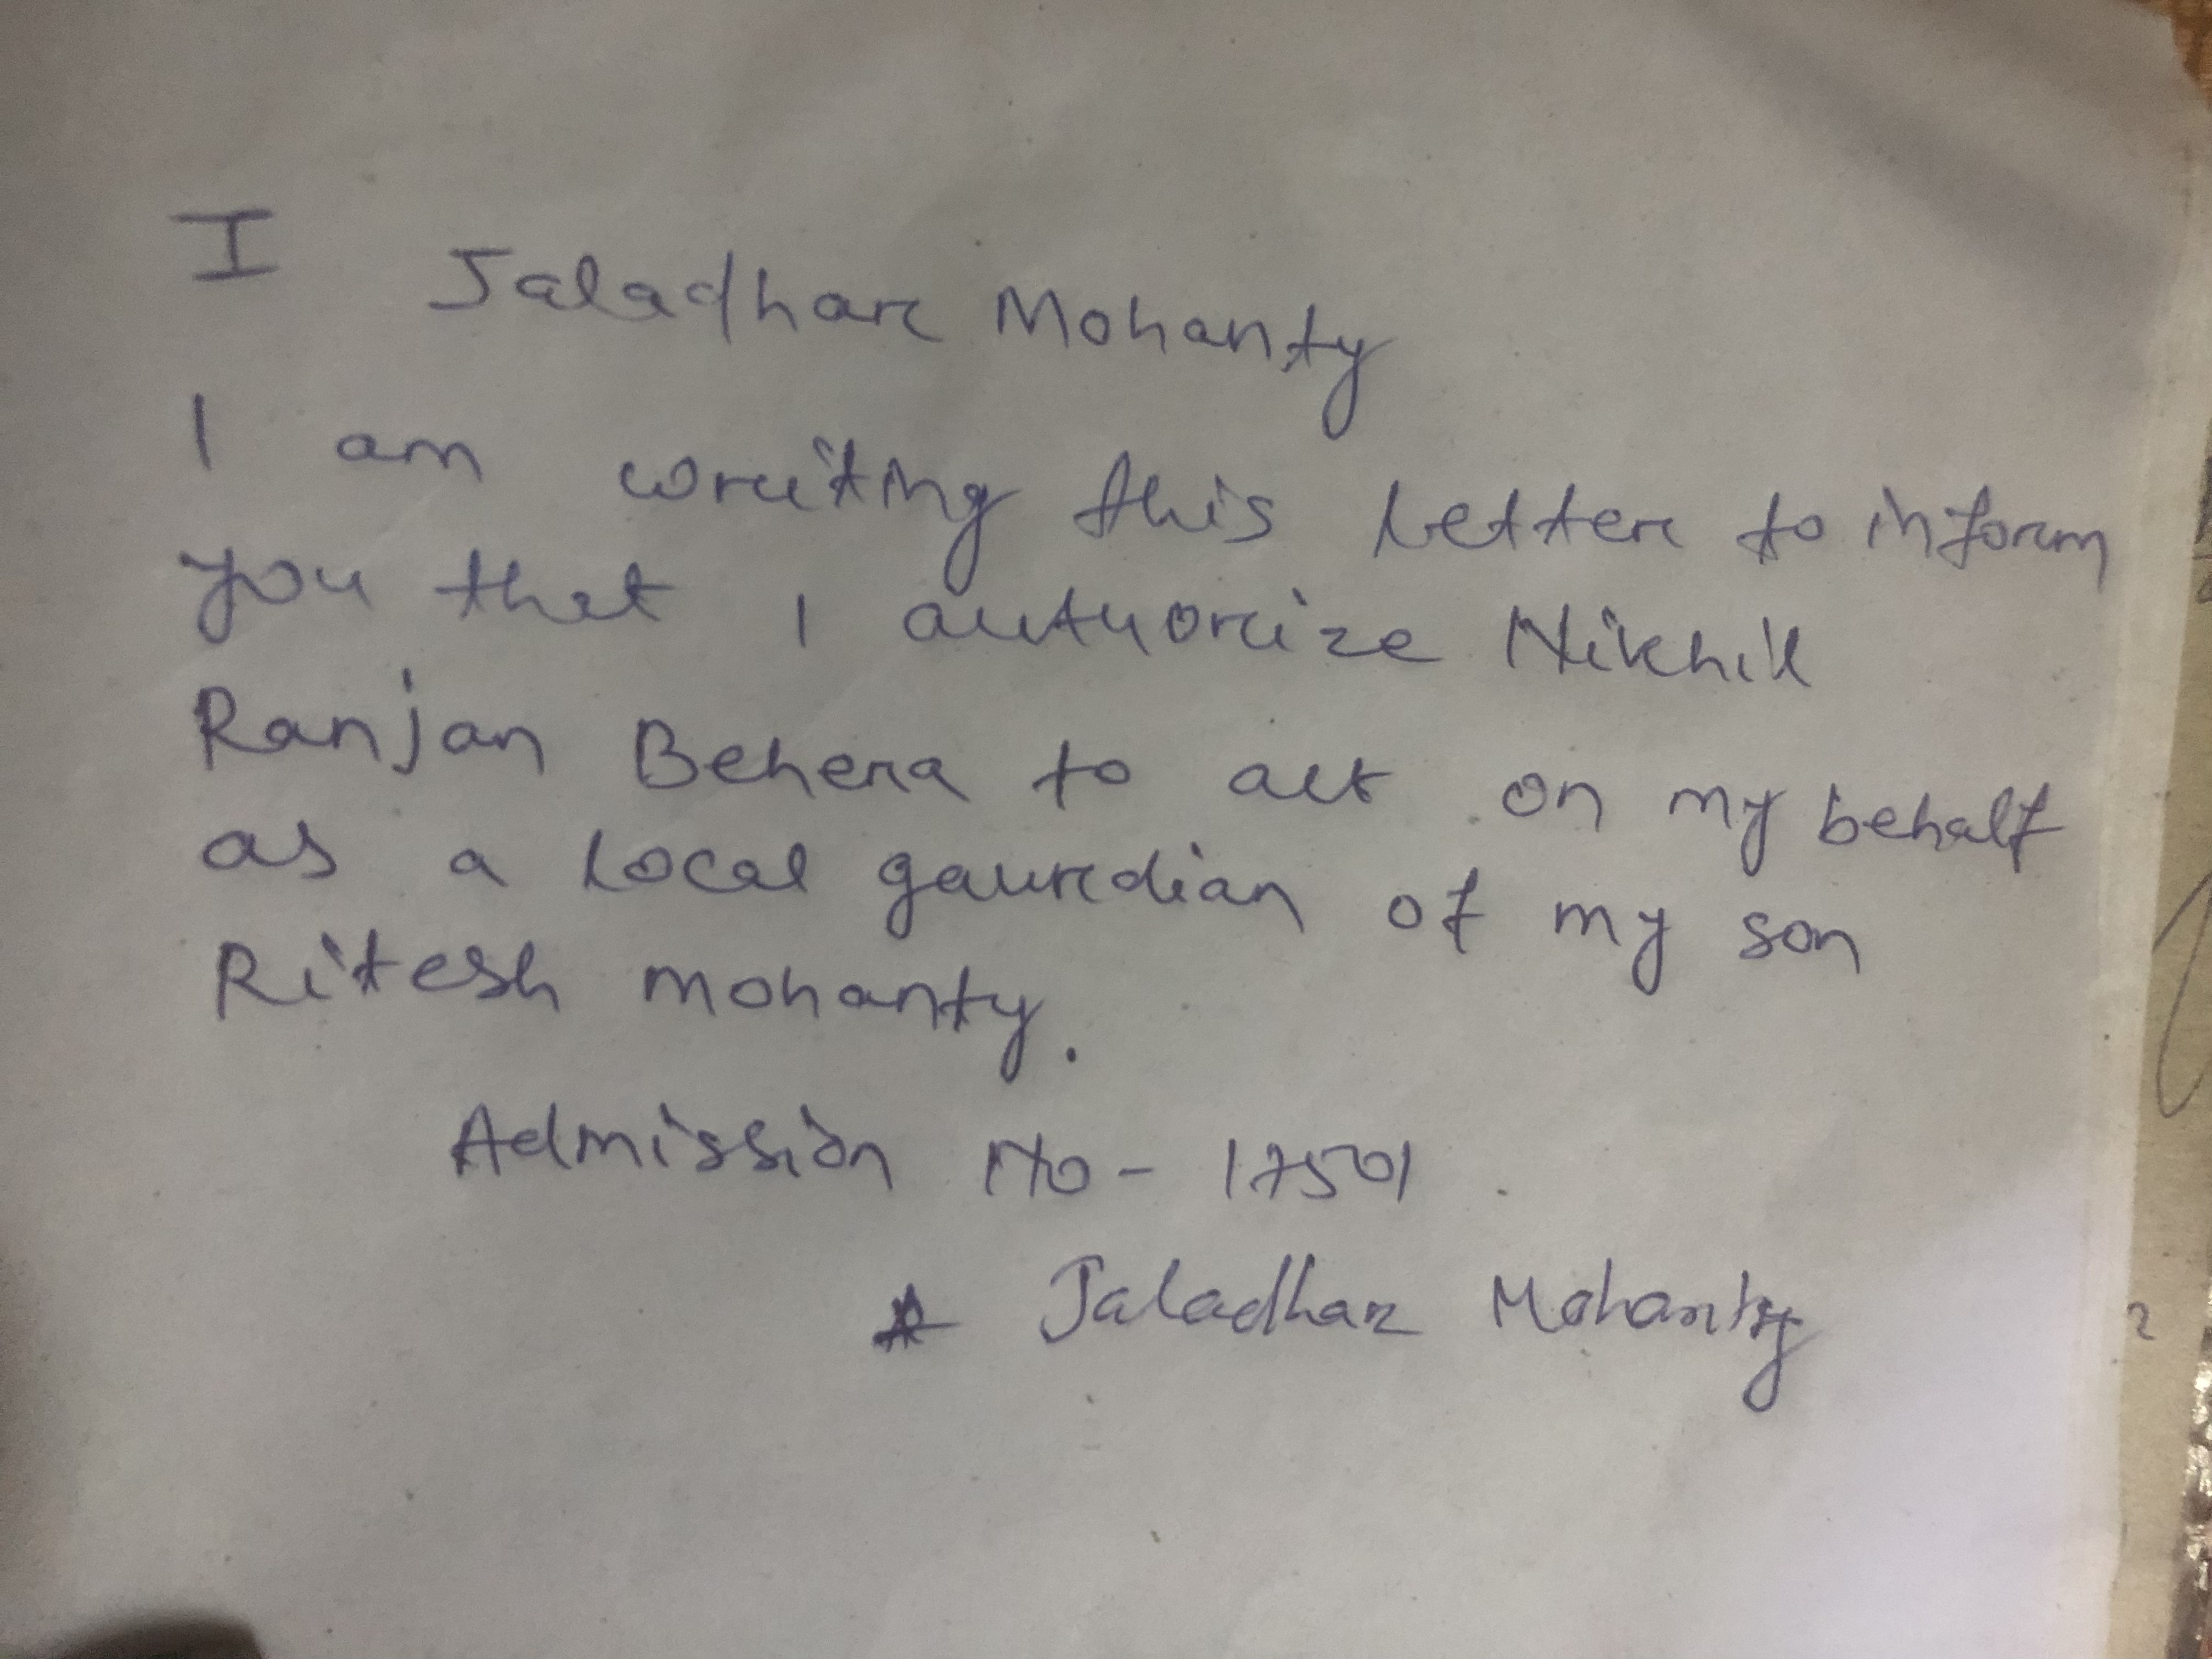 I Jaladhar Mohanty
I am writing this letter to inform
you that I authorize Nikhil
Ranjan Behera to act on my behalf
as a local gaurdian of my son
Ritesh Mohanty.
Admission No - 17501
Jaladhar Mohanty